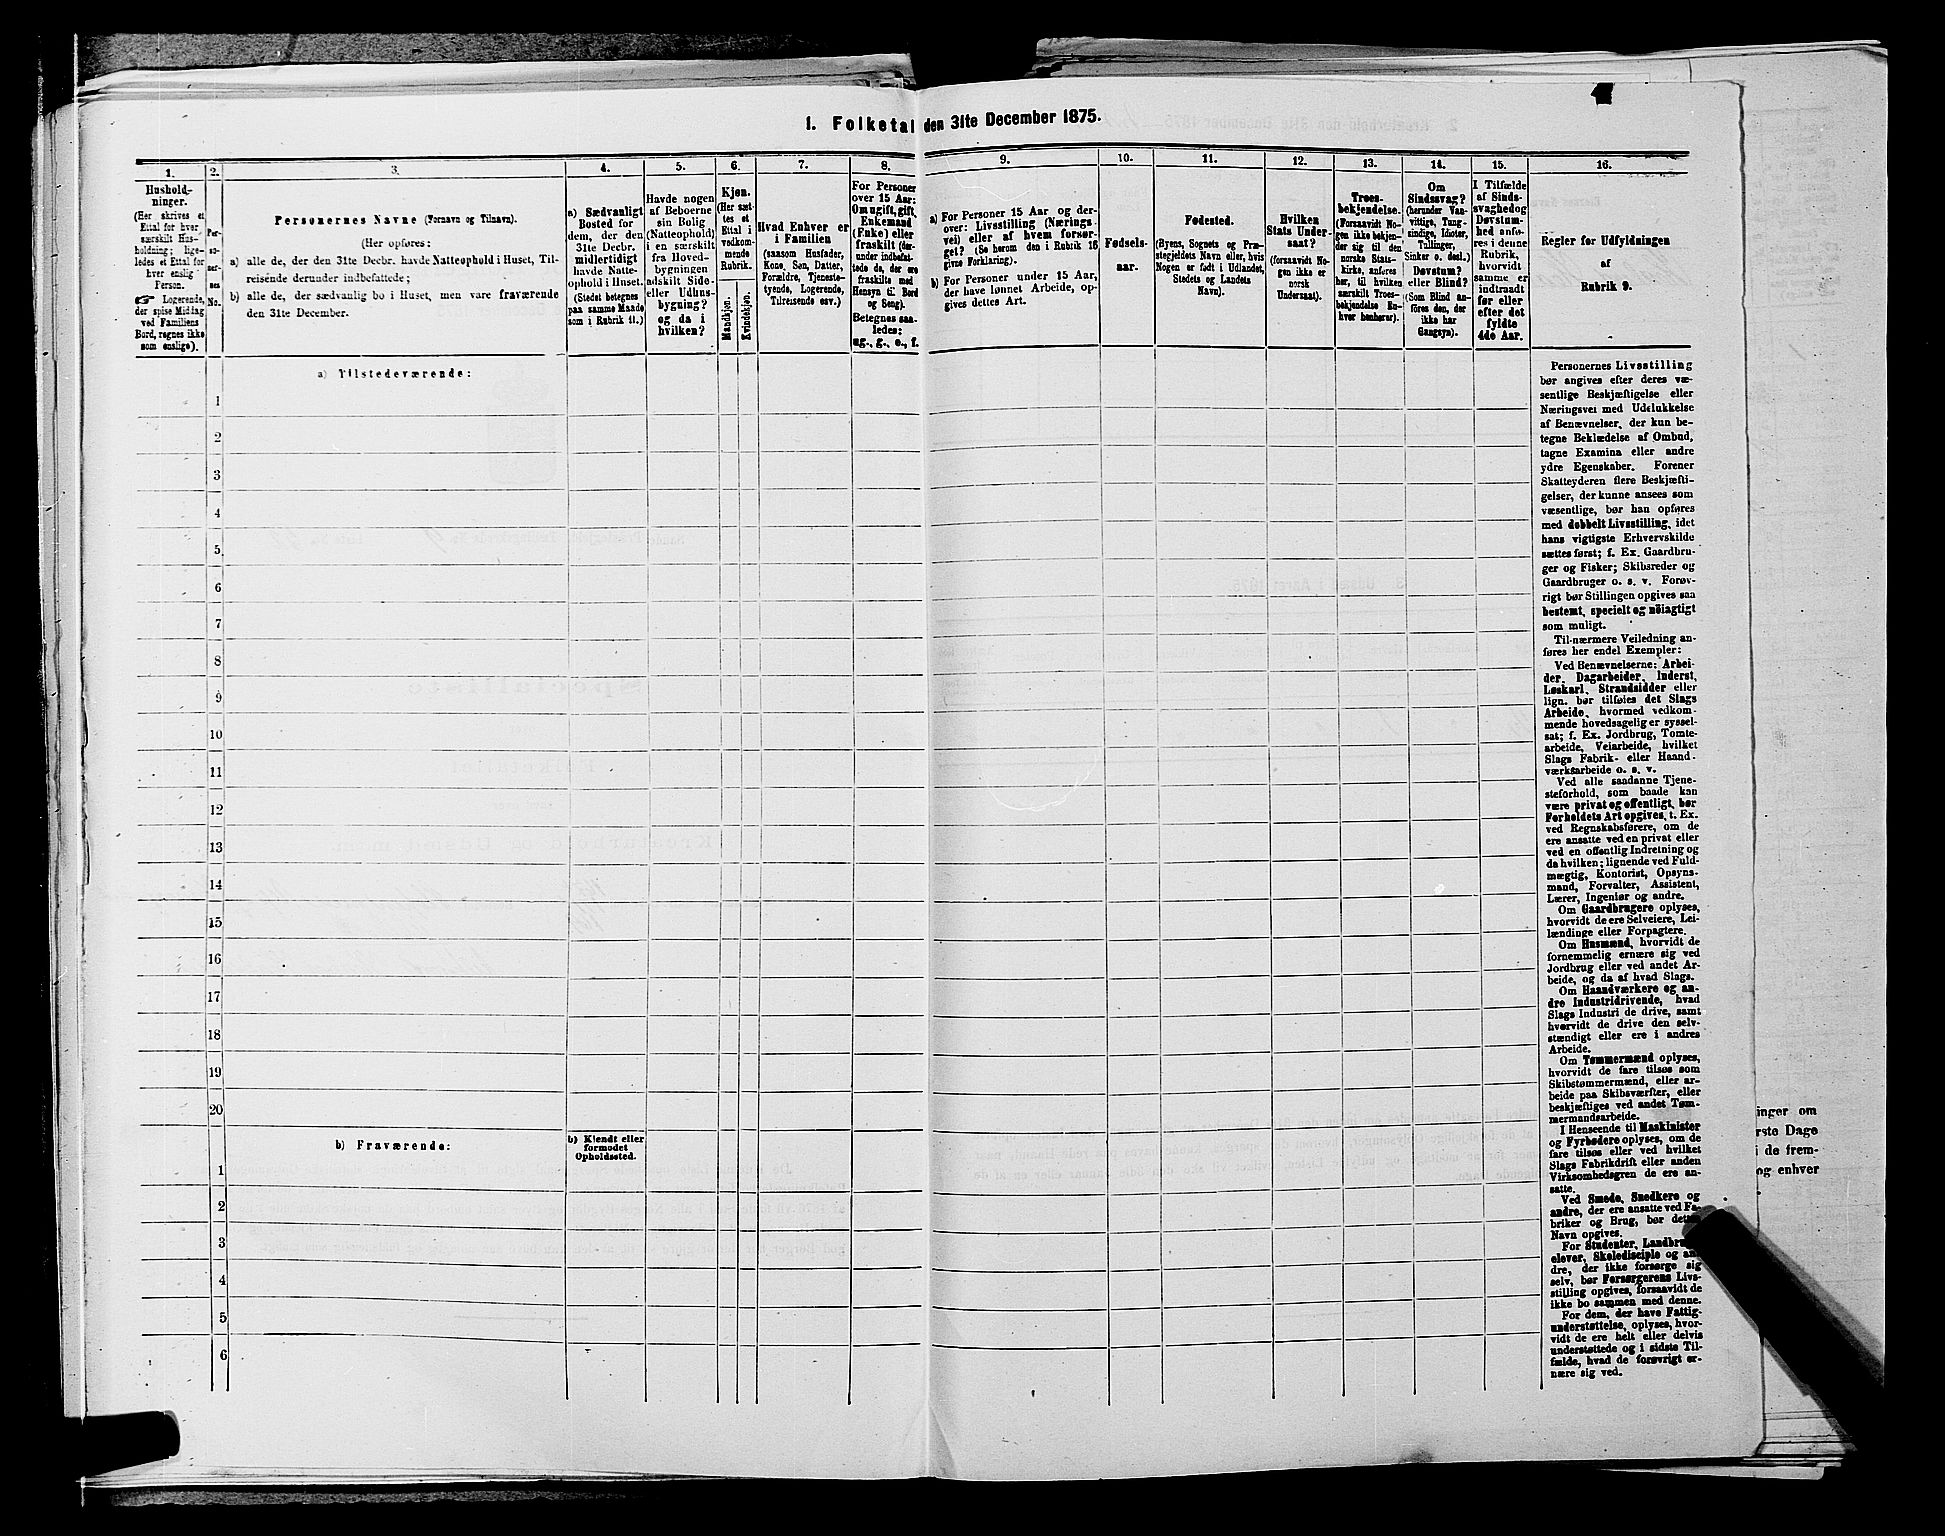 1. Folketal den 31te December 1875.
1.
Hushold-
ninger.
(Her skrives et
Ettal for hver
særskilt Hus-
holdning; lige-
ledes et Ettal for
hver enslig
Person.
☞ Logerende,
der spise Middag
ved Familiens
Bord, regnes ikke
som enslige).
2.
Per-
so-
ner-
nes
No.
3.
Personernes Navne (Fornavn og Tilnavn).
(Her opføres:
a) alle de, der den 31te Decbr. havde Natteophold i Huset, Til-
reisende derunder indbefattede;
b) alle de, der sædvanlig bo i Huset, men vare fraværende
den 31te December.
4.
a) Sædvanligt
Bosted for
dem, der den
31te Decbr.
midlertidigt
havde Natte-
ophold i Huset.
(Stedet betegnes
paa samme Maade
som i Rubrik 11.)
5.
Havde nogen
af Beboerne
sin Bolig
(Natteophold)
i en særskilt
fra Hoved-
bygningen
adskilt Side-
eller Udhus-
bygning?
og da i
hvilken?
6.
Kjøn.
(Her sæt-
tes et
Ettal i
vedkom-
mende
Rubrik.
Mandkjøn.
Kvindekjøn.
7.
Hvad Enhver er
i Familien
(saasom Husfader,
Kone, Søn, Datter,
Forældre, Tjeneste-
tyende, Logerende,
Tilreisende osv.)
8.
For Personer
over 15 Aar:
Om ugift, gift,
Enkemand
(Enke) eller
fraskilt (der-
under indbefat-
tede de, der ere
fraskilte med
Hensyn til Bord
og Seng).
Betegnes saa-
ledes:
ug., g., e., f.
9.
a) For Personer 15 Aar og der-
over: Livsstilling (Nærings-
vei) eller af hvem forsør-
get? (Se herom den i Rubrik 16
givne Forklaring).
b) For Personer under 15 Aar,
der have lønnet Arbeide, op-
gives dettes Art.
10.
Fødsels-
aar.
11.
Fødested.
(Byens, Sognets og Præ-
stegjeldets Navn eller, hvis
Nogen er født i Udlandet,
Stedets og Landets
Navn).
12.
Hvilken
Stats Under-
saat?
(forsaavidt No-
gen ikke er
norsk
Undersaat).
13.
Troes-
bekjendelse.
(Forsaavidt No-
gen ikke bekjen-
der sig til den
norske Stats-
kirke, anføres
her, til hvilken
særskilt Troes-
bekjendelse En-
hver henhører).
14.
Om
Sindssvag?
(herunder Van-
vittige, Tung-
sindige, Idioter,
Tullinger,
Sinker o. desl.)
Døvstum?
eller Blind?
(Som Blind an-
føres den, der
ikke har
Gangsyn).
15.
I Tilfælde
af Sinds-
svaghed og
Døvstum-
hed anfø-
res i denne
Rubrik,
hvorvidt
samme er
indtraadt
før eller
efter det
fyldte
4de Aar.
16.
Regler for Udfyldningen
af
Rubrik 9.
a) Tilstedeværende:
1
2
3
4
5
6
7
8
9
10
11
12
13
14
15
16
17
18
19
20
b) Fraværende:
b) Kjendt eller
formodet
Opholdssted.
1
2
3
4
5
6
Personernes Livsstilling
bør angives efter deres væ-
sentlige Beskjæftigelse eller
Næringsvei med Udelukkelse
af Benævnelser, der kun be-
tegne Beklædelse af Ombud,
tagne Examina eller andre
ydre Egenskaber. Forener
Skatteyderen flere Beskjæfti-
gelser, der kunne ansees som
væsentlige, bør han opføres
med dobbelt Livsstilling, idet
hans vigtigste Erhvervskilde
sættes først; f. Ex. Gaardbru-
ger og Fisker; Skibsreder og
Gaardbruger o. s. v. Forøv-
rigt bør Stillingen opgives saa
bestemt, specielt og nøiagtigt
som muligt.
Til nærmere Veiledning an-
føres her endel Exempler:
Ved Benævnelserne: Arbei-
der, Dagarbeider, Inderst,
Løskarl, Strandsidder eller
lign. bør tilføies det Slags
Arbeide, hvormed vedkom-
mende hovedsagelig er syssel-
sat; f. Ex. Jordbrug, Tomte-
arbeide, Veiarbeide, hvilket
Slags Fabrik- eller Haand-
værksarbeide o. s. v.
Ved alle saadanne Tjene-
steforhold, som baade kan
være privat og offentligt, bør
Forholdets Art opgives, t. Ex.
ved Regnskabsførere, om de
ere ansatte ved en privat eller
ved en offentlig Indretning og
da hvilken; lignende ved Fuld-
mægtig, Kontorist, Opsyns-
mand, Forvalter, Assistent,
Lærer, Ingeniør og andre.
Om Gaardbrugere oplyses,
hvorvidt de ere Selveiere, Lei-
lændinge eller Forpagtere.
Om Husmænd, hvorvidt de
fornemmelig ernære sig ved
Jordbrug eller ved andet Ar-
beide, og da af hvad Slags.
Om Haandværkere og an-
dre Industridrivende, hvad
Slags Industri de drive, samt
hvorvidt de drive den selv-
stændigt eller ere i andres
Arbeide.
Om Tømmermænd oplyses,
hvorvidt de fare tilsøs som
Skibstømmermænd, eller ar-
beide paa Skibsværfter, eller
beskjæftiges ved andet Tøm-
mermandsarbeide.
I Henseende til Maskinister
og Fyrbødere oplyses, om de
fare tilsøs eller ved hvilket
Slags Fabrikdrift eller anden
Virksomhedsgren de ere an-
satte.
Ved Smede, Snedkere og
andre, der ere ansatte ved Fa-
briker og Brug, bør dettes
Navn opgives.
For Studenter, Landbrugs-
elever, Skoledisciple og an-
dre, der ikke forsørge sig
selv, bør Forsørgerens Livs-
stilling opgives, forsaavidt de
ikke bo sammen med denne.
For dem, der have Fattig-
understøttelse, oplyses, hvor-
vidt de ere helt eller delvis
understøttede og i sidste Til-
fælde, hvad de forøvrigt er-
nære sig ved.
inger om
rste Dage
i de frem-
og enhver